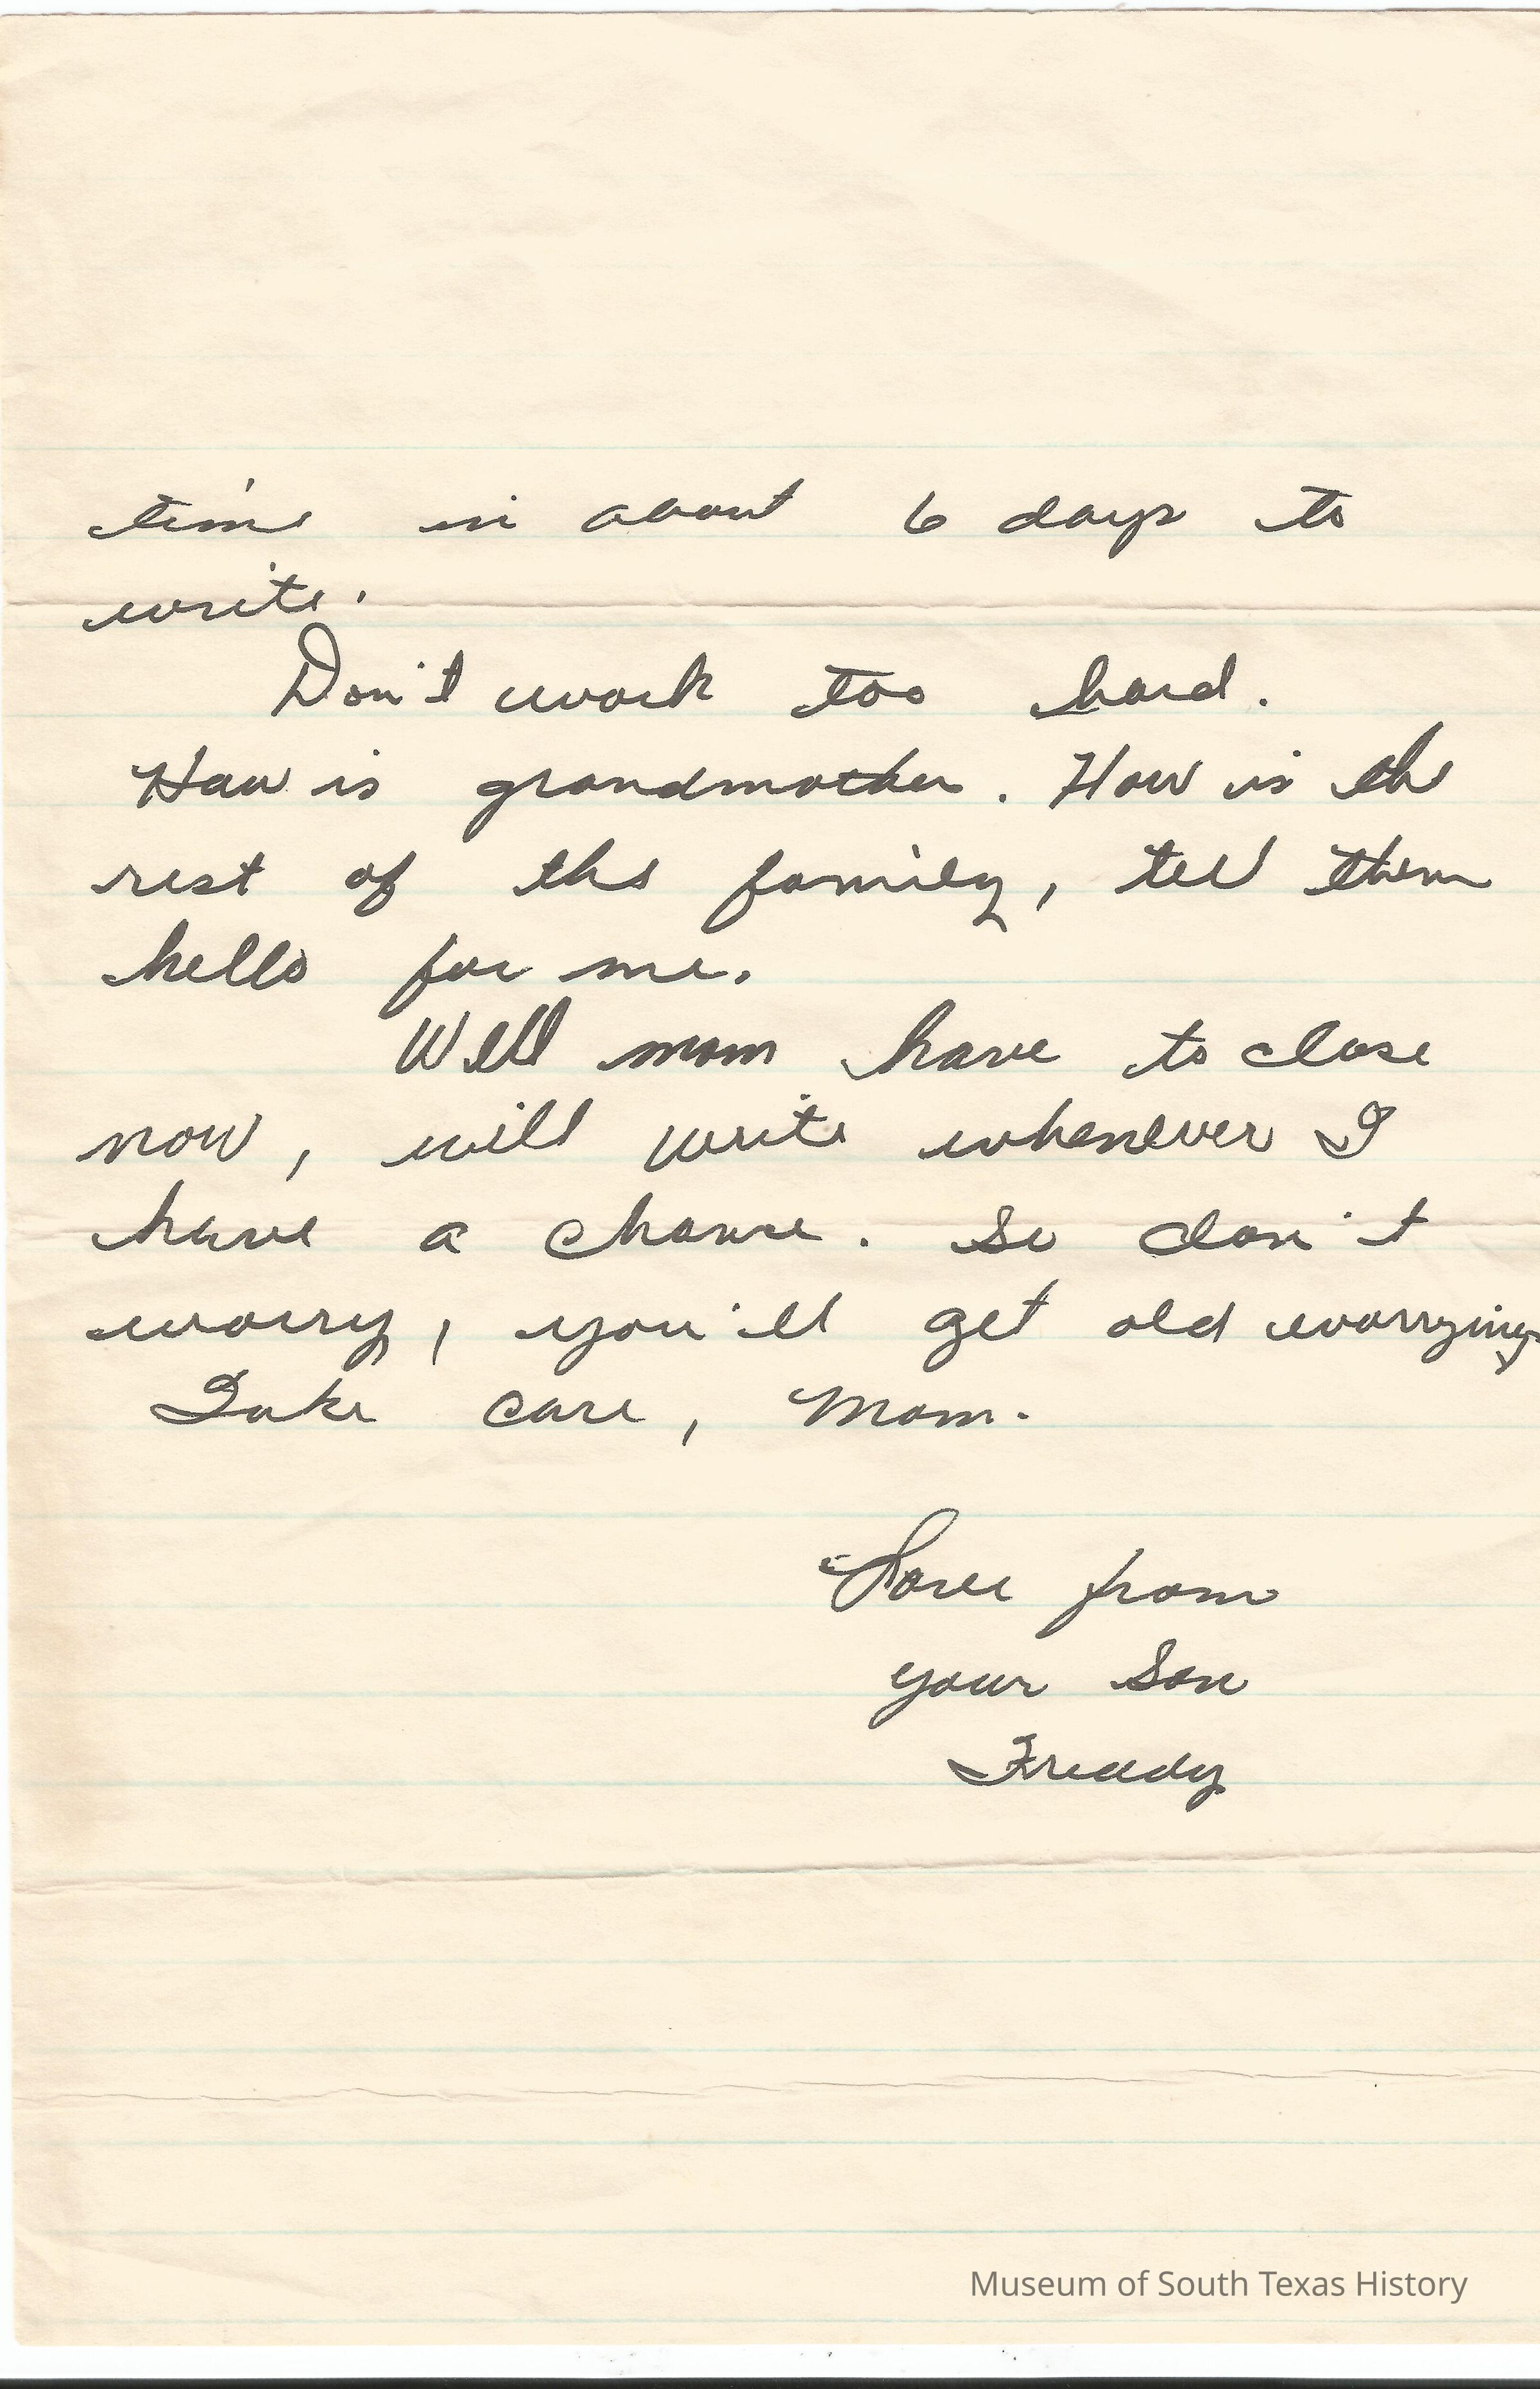 time in about 6 days to
write.
Don't work too hard.
How is grandmother. How is the
rest of the family, tell them
hello for me.
Well mom have to close
now, will write whenever I
have a chance. So don't
worry, you'll get old worrying
Take care, Mom.
Love from
your Son
Freddy
Museum of South Texas History